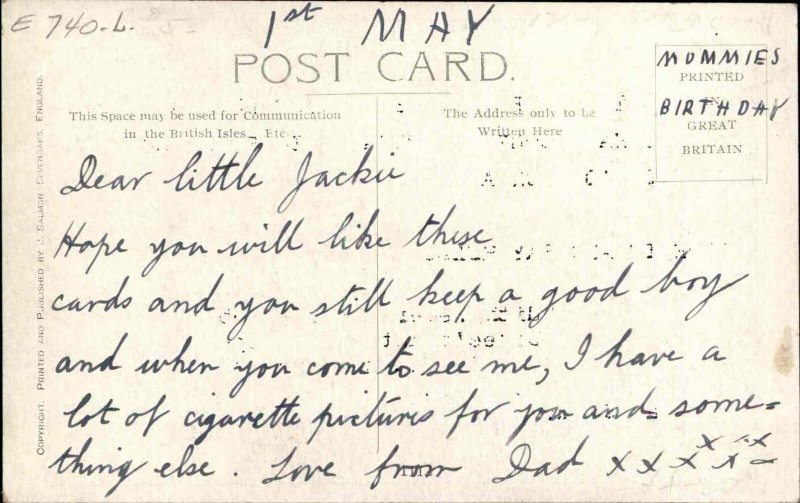 E 740-L.
1st MAY
POST CARD.
MUMMIES
BIRTHDAY
PRINTED
IN
GREAT
BRITAIN
This Space may be used for Communication
in the British Isles Etc
The Address only to be
Written Here
Dear little Jackie
Hope you will like these
cards and you still keep a good boy
and when you come to see me, I have a
lot of cigarette pictures for you and some=
thing else. Love from Dad x x x x x x
COPYRIGHT. PRINTED AND PUBLISHED BY J. SALMON SEVENOAKS, ENGLAND.